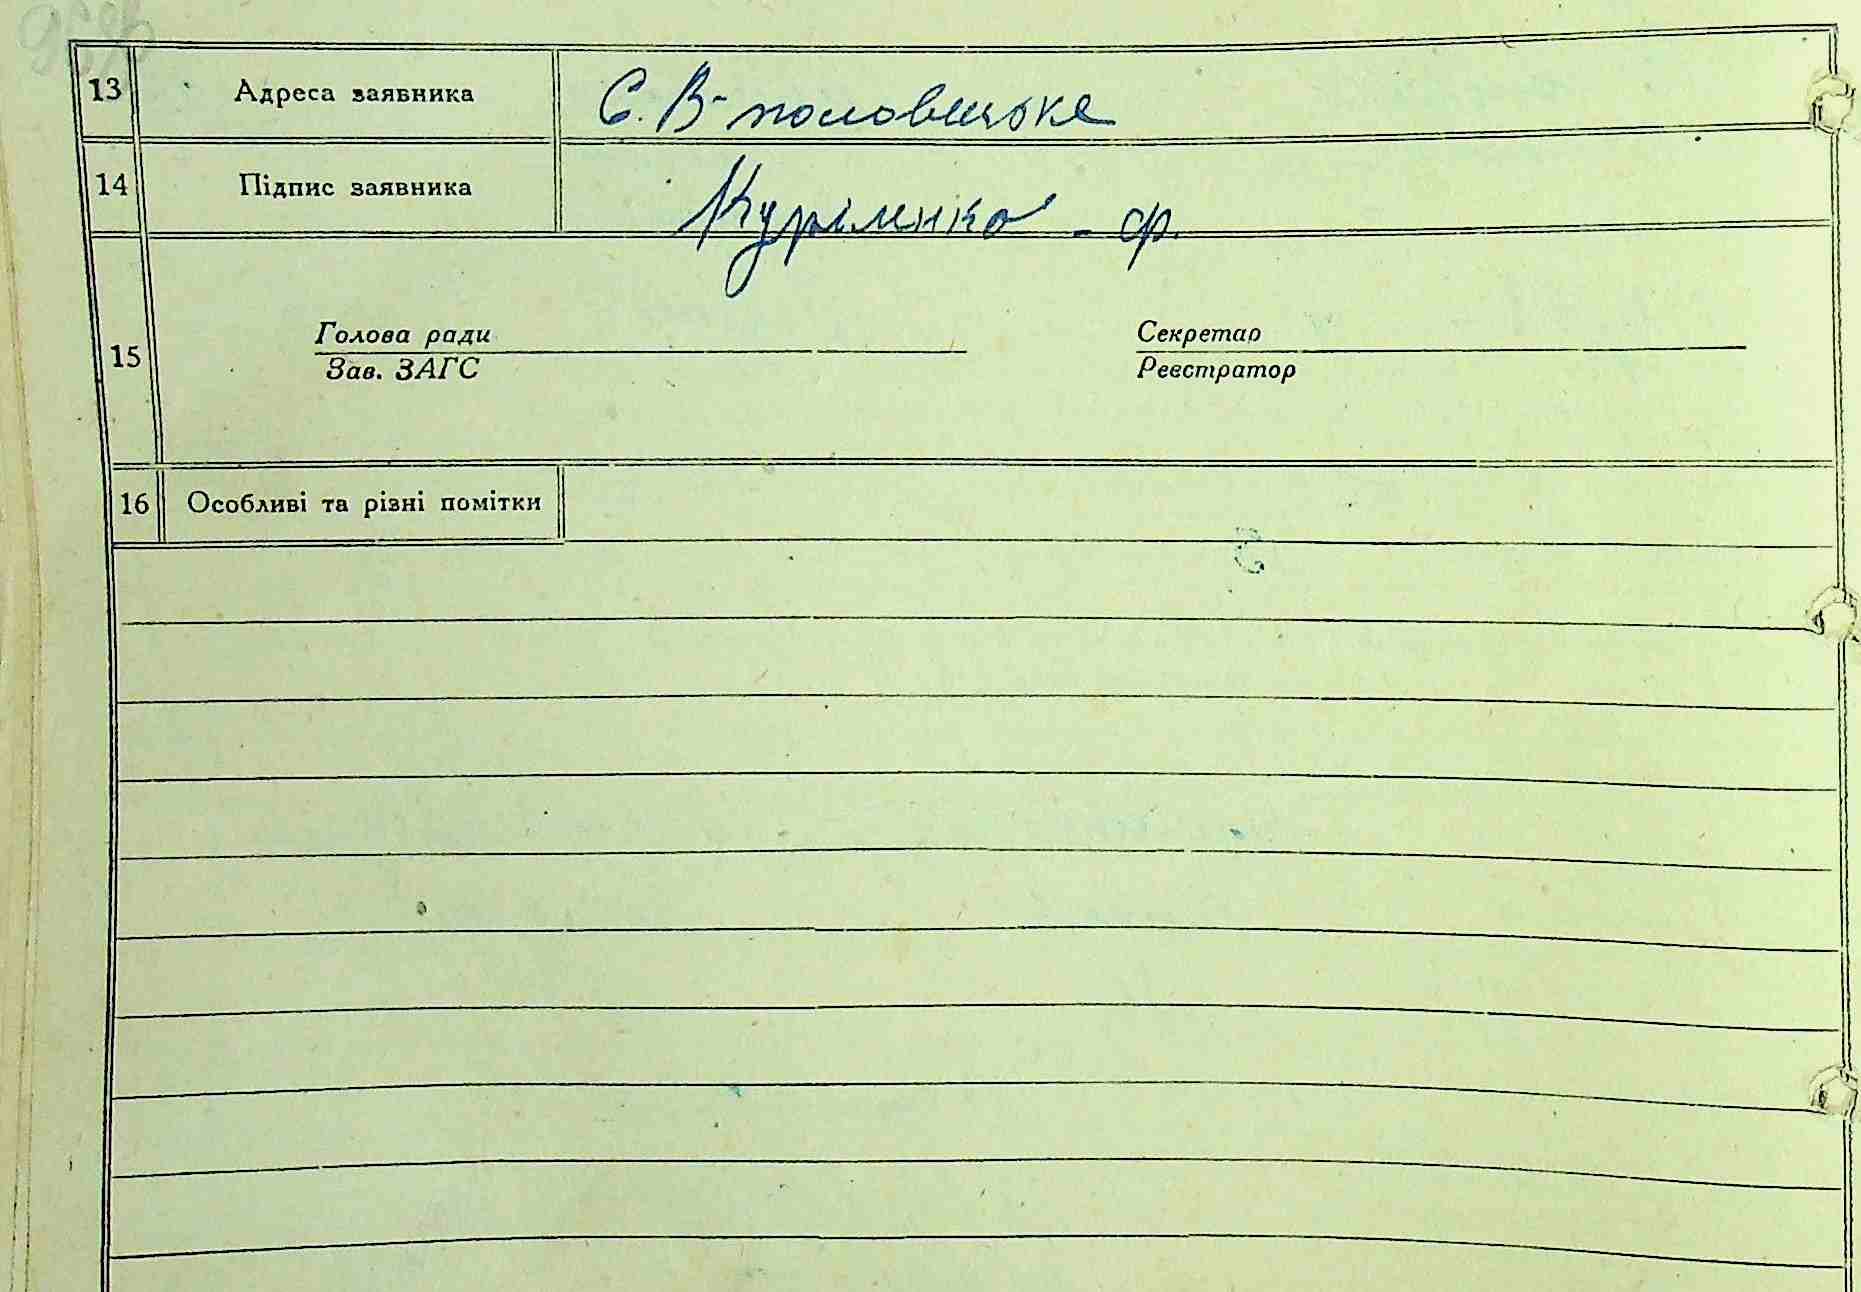 13 Адреса заявника С. В-половецьке
14 Підпис заявника Куріленко - ф.
15
Голова ради Секретар
Зав. ЗАГС Реєстратор
16 Особливі та різні помітки